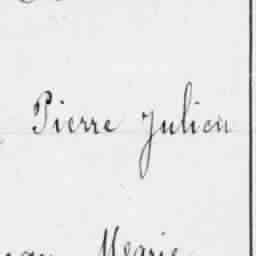 Pierre Julien
Marie